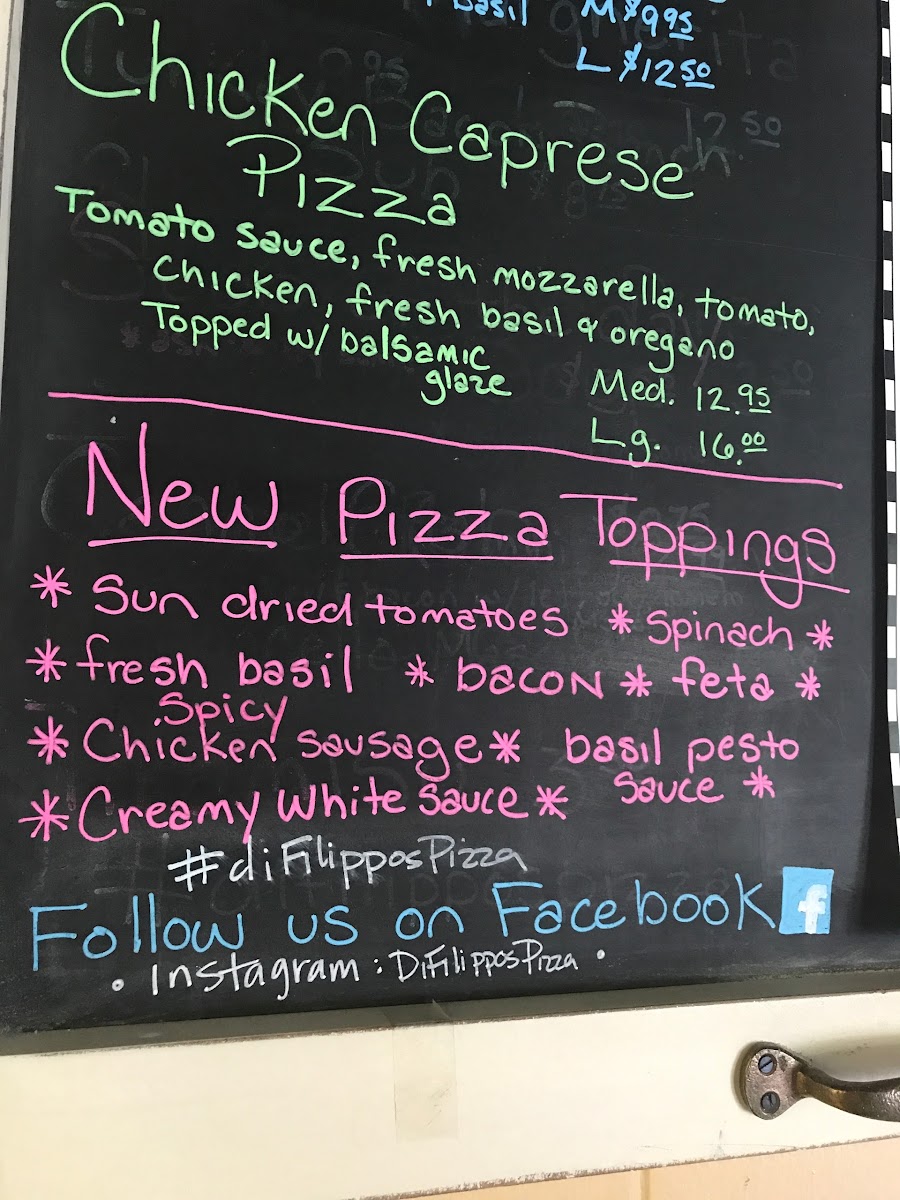 basil M $9.95
L $12.50
Chicken Caprese
Pizza
Tomato sauce, fresh mozzarella, tomato,
chicken, fresh basil & oregano
Topped w/ balsamic
glaze
Med. 12.95
Lg. 16.00
New Pizza Toppings
* Sun dried tomatoes * Spinach *
* fresh basil * bacon * feta *
Spicy
* Chicken sausage * basil pesto
sauce *
* Creamy White Sauce *
#diFilipposPizza
Follow us on Facebook f
• Instagram: DiFilipposPizza •